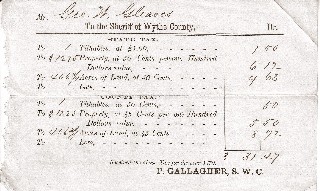 Mr. Geo. W. Gleaves
To the Sheriff of Wythe County, Dr.
STATE TAX.
To 1 Tithables, at $1.00, 1 00
To $ 1235 Property, at 50 Cents per one Hundred
Dollars value, 6 17
To 466 Acres of Land, at 50 Cents, 4 63
To Law,
COUNTY TAX.
To 1 Tithables, at 50 Cents, 50
To $ 1235 Property, at 45 Cents per one Hundred
Dollars value, 5 50
To Acres of Land, at 45 Cents
To Law,
$ 31.47
P. GALLAGHER, S. W. C.